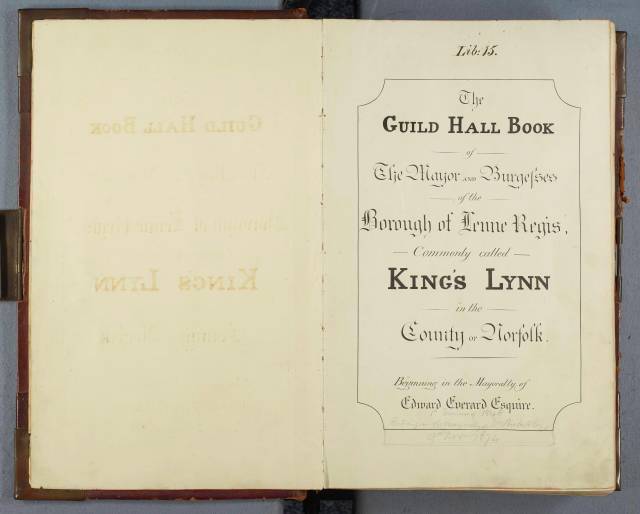 Lib: 15.
The
GUILD HALL BOOK
of
The Mayor AND Burgeſses
of the
Borough of Lenne Regis,
Commonly called
KING'S LYNN
in the
County OF Norfolk.
Beginning in the Mayoralty of
Edward Everard Esquire.
9th Nov 1874